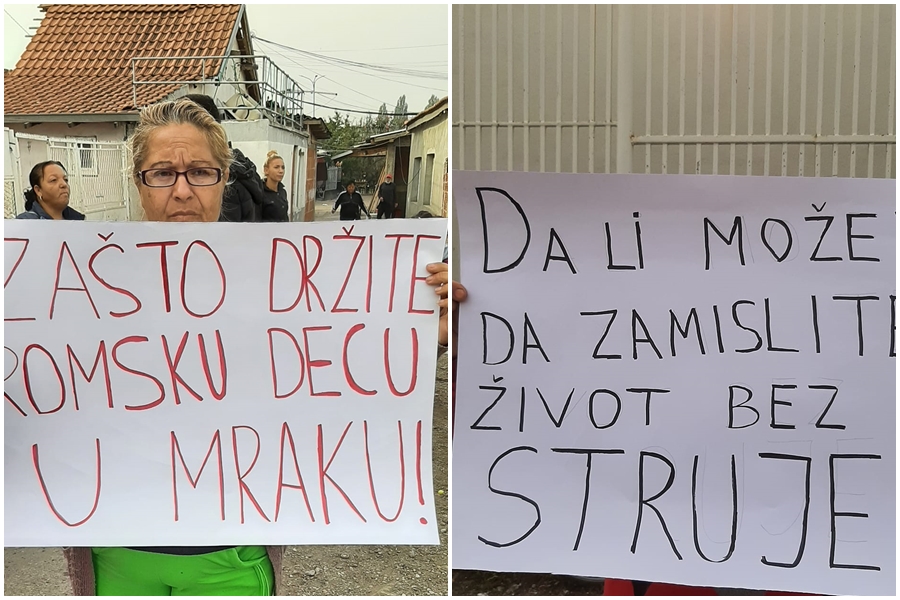 ZAŠTO DRŽITE
ROMSKU DECU
U MRAKU!
DA LI MOŽE
DA ZAMISLITE
ŽIVOT BEZ
STRUJE